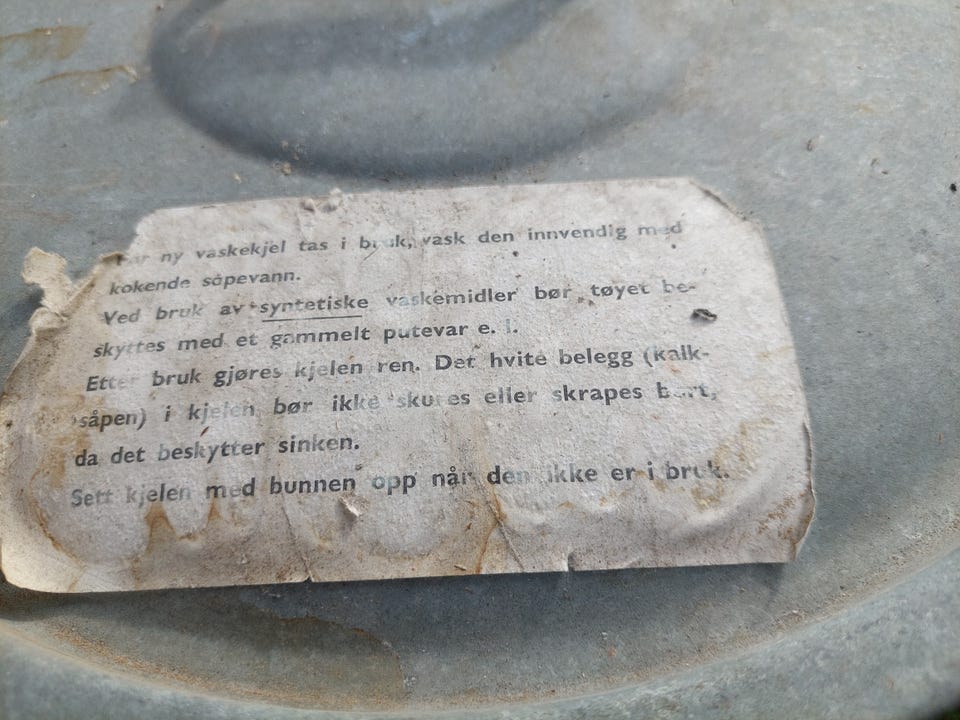 Før ny vaskekjel tas i bruk, vask den innvendig med
kokende såpevann.
Ved bruk av syntetiske vaskemidler bør tøyet be-
skyttes med et gammelt putevar e. l.
Etter bruk gjøres kjelen ren. Det hvite belegg (kalk-
såpen) i kjelen bør ikke skures eller skrapes bort,
da det beskytter sinken.
Sett kjelen med bunnen opp når den ikke er i bruk.